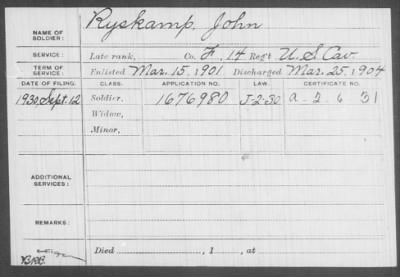 NAME OF SOLDIER: Ryskamp, John
SERVICE: Late rank, Co. F, 14 Reg't U.S. Cav.
TERM OF SERVICE: Enlisted Mar. 15, 1901 Discharged Mar. 25, 1904
DATE OF FILING. CLASS. APPLICATION NO. LAW. CERTIFICATE NO.
1930, Sept. 12 Soldier, 1676980 J-2-30 A-2-6 31
Widow,
Minor,
ADDITIONAL SERVICES:
REMARKS:
Died , 1 , at